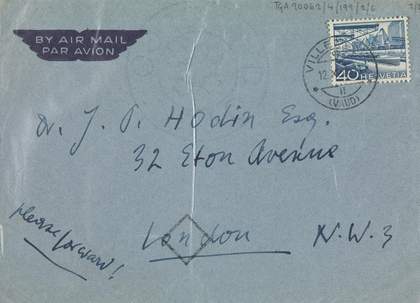 TGA 20062/4/199/2/2
BY AIR MAIL
PAR AVION
VILLE
12
II
(VAUD)
40 HELVETIA
Dr. J. P. Hodin Esq.
32 Eton Avenue
please forward!
London N.W.3